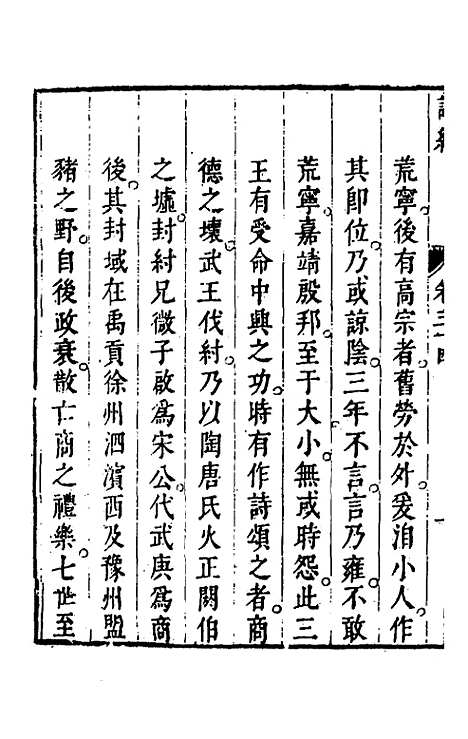 荒寧。後有高宗者。舊勞於外。爰洎小人。作
其即位。乃或諒陰。三年不言。言乃雍。不敢
荒寧。嘉靖殷邦。至于大小。無或時怨。此三
王有受命中興之功。時有作詩頌之者。商
德之壞。武王伐紂。乃以陶唐氏火正閼伯
之墟。封紂兄微子啟為宋公。代武庚為商
後。其封域在禹貢徐州泗濱西及豫州盟
豬之野。自後政衰。散亡商之禮樂。七世至